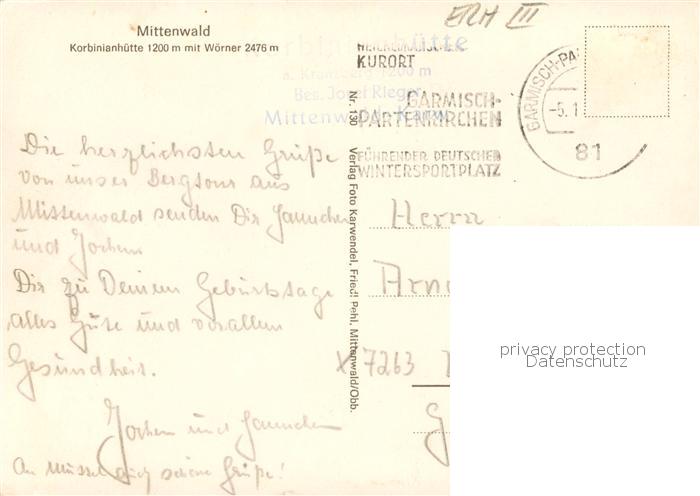 Mittenwald
Korbinianhütte 1200 m mit Wörner 2476 m
ERH III
Korbinianhütte
a. Kranzberg 1200 m
Bes. Josef Rieger
Mittenwald Karw.
HEILKLIMATISCHER
KURORT
GARMISCH-
PARTENKIRCHEN
FÜHRENDER DEUTSCHER
WINTERSPORTPLATZ
GARMISCH-PA
-5.1
81
Nr. 130 Verlag Foto Karwendel, Friedl Pehl, Mittenwald/Obb.
Die herzlichsten Grüße
von unser Bergtour aus
Mittenwald senden Dir Hannchen
und Jochen
Dir zu Deinem Geburtstage
alles Gute und vorallem
Gesundheit.
Jochen und Hannchen
An auch schöne Grüße!
Herrn
Arno
X 7263
privacy protection
Datenschutz